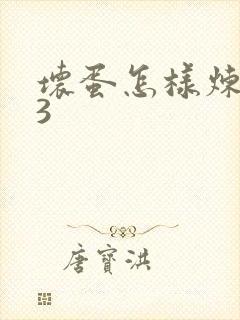 壞蛋怎樣煉
3
唐寶洪